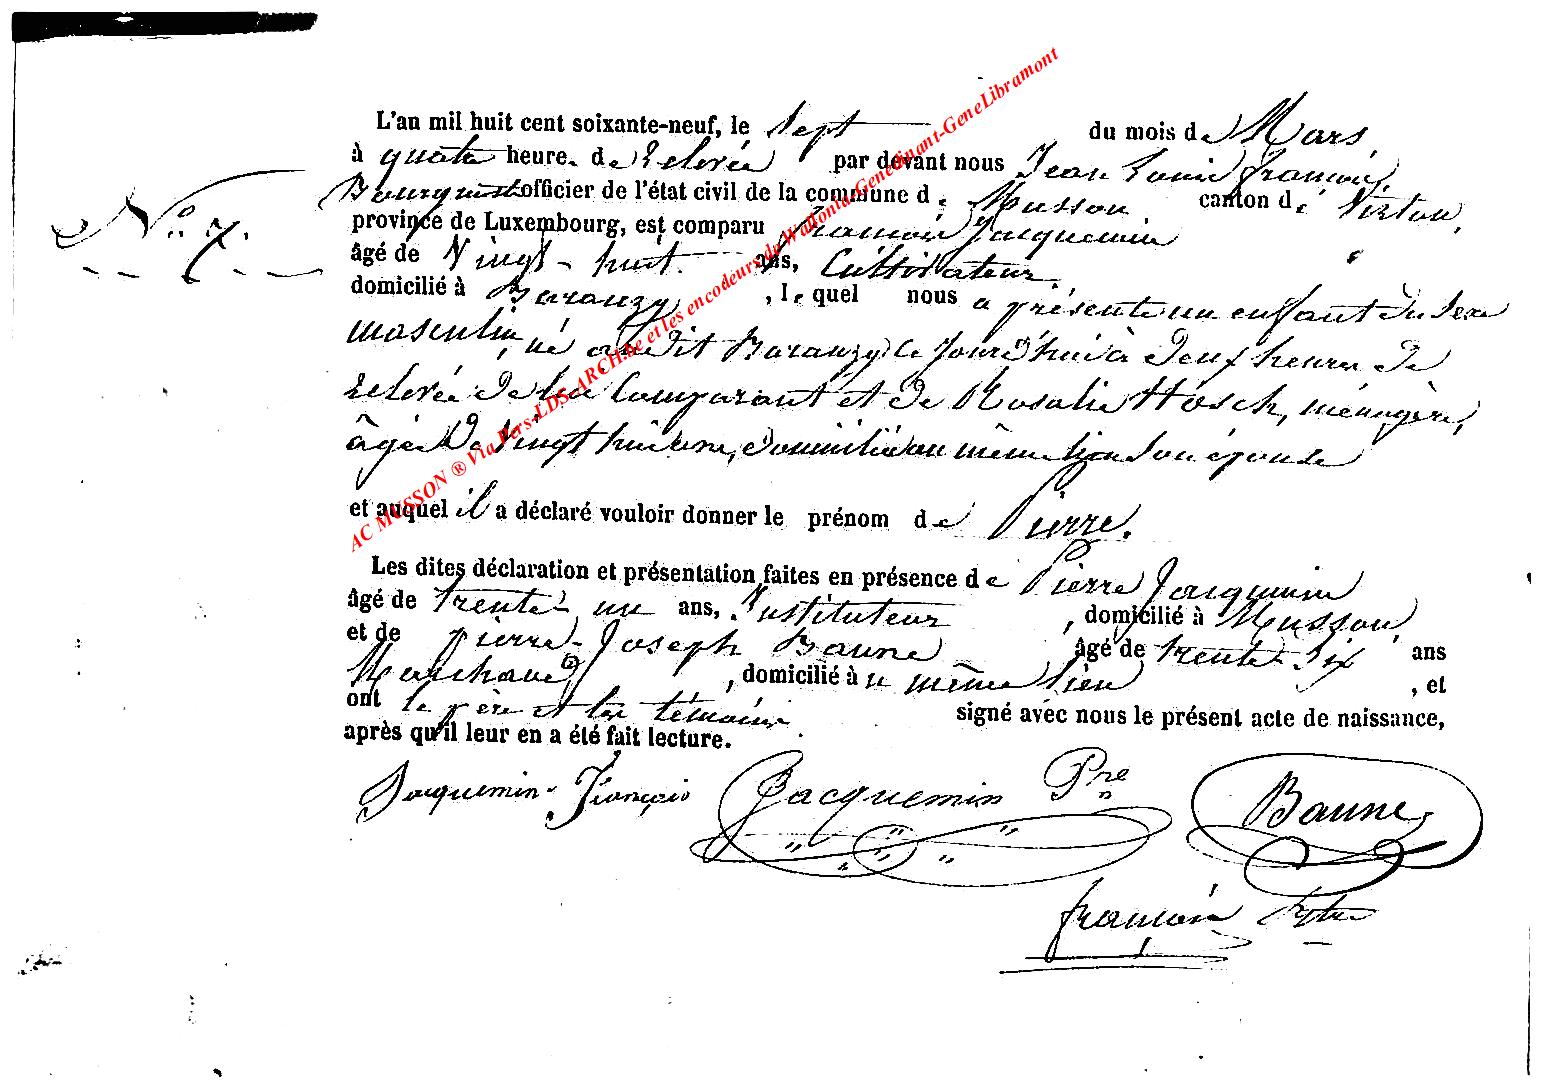 L'an mil huit cent soixante-neuf, le Sept du mois de Mars,
à quatre heure. de relevée par devant nous Jean Louis François,
officier de l'état civil de la commune de Musson canton de Virton,
N.° 7.
province de Luxembourg, est comparu François Jacquemin
âgé de Vingt-huit ans, Cultivateur
domicilié à Baranzy, lequel nous a présenté un enfant du sexe
masculin, né audit Baranzy ce jourd'hui à deux heures de
relevée de lui Comparant et de Rosalie Hosch, ménagère,
âgée de Vingt huit ans, domiciliée au même lieu Son épouse
et auquel il a déclaré vouloir donner le prénom de Pierre.
Les dites déclaration et présentation faites en présence de Pierre Jacquemin
âgé de trente-un ans, Instituteur, domicilié à Musson,
et de Pierre-Joseph Baune âgé de trente-six ans
Marchand, domicilié à u même lieu, et
ont le père et les témoins signé avec nous le présent acte de naissance,
après qu'il leur en a été fait lecture.
Jacquemin François Jacquemin Pre Baune
françois
AC MUSSON ® Via Pers-LDS-ARCH.be et les encodeurs du Wallonia-Genedinant-GeneLibramont